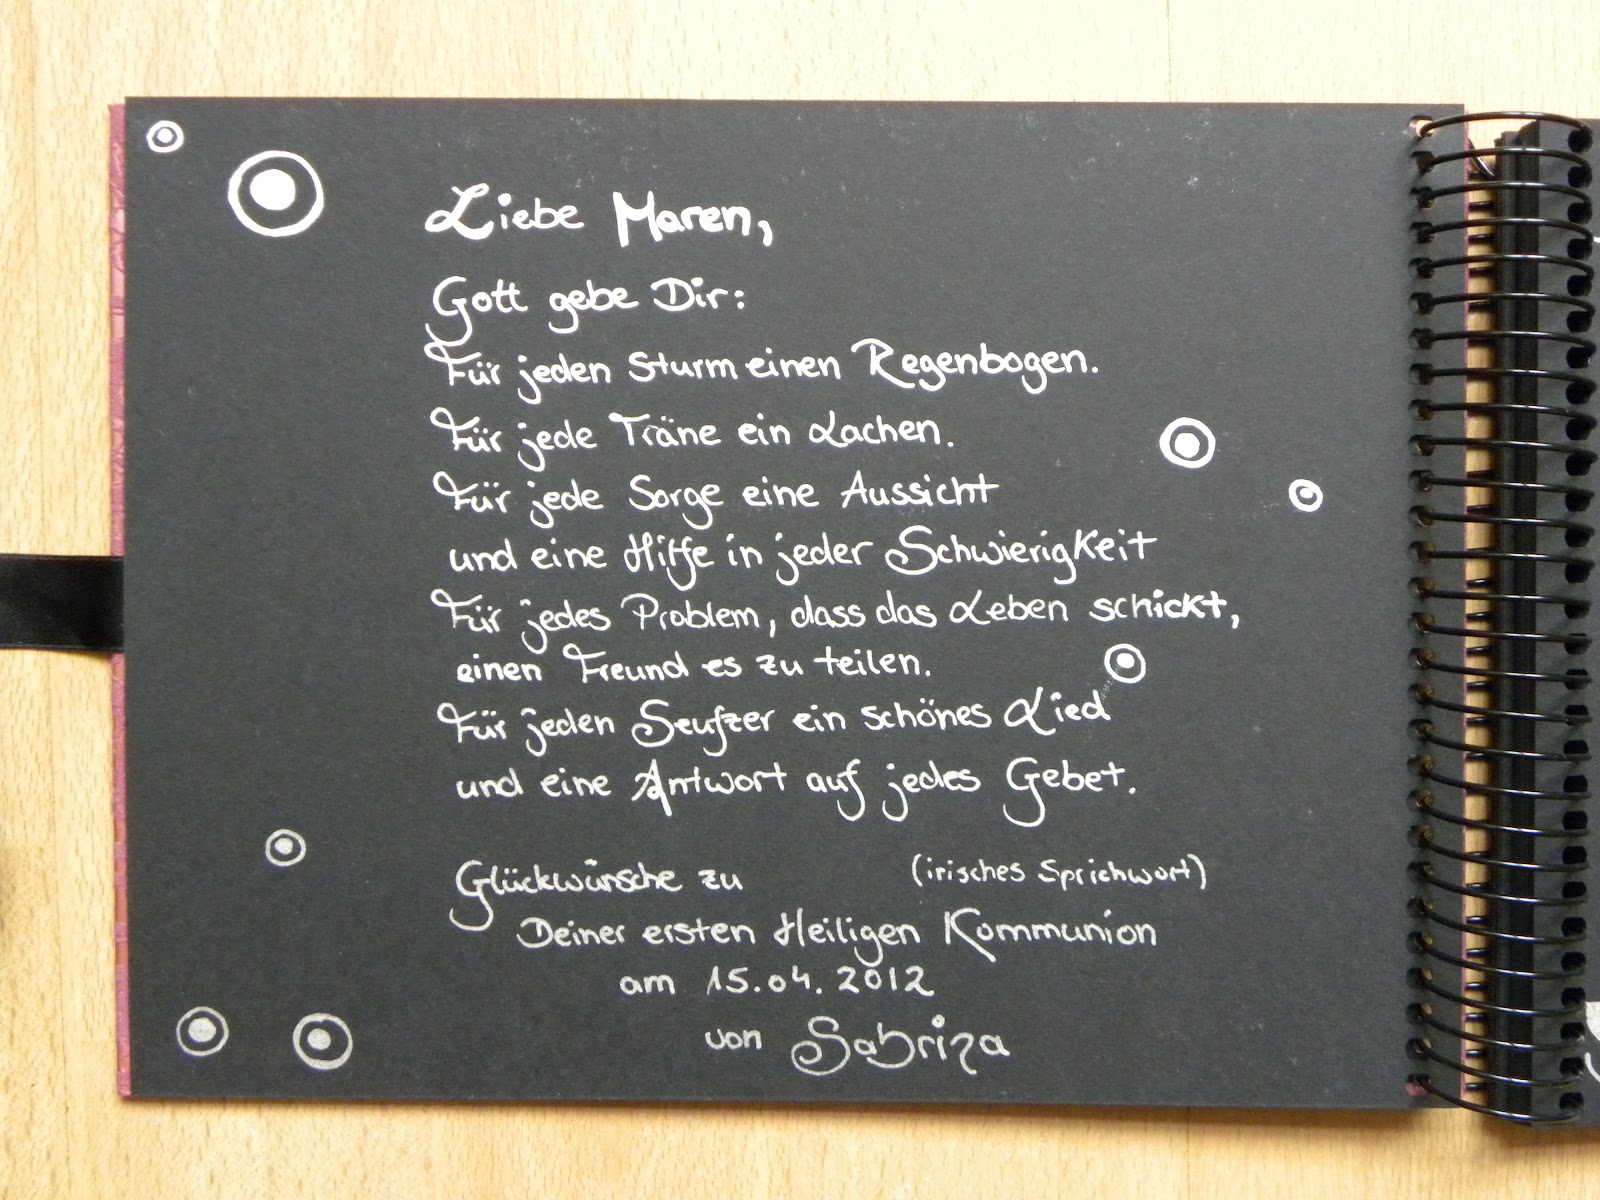 Liebe Maren,
Gott gebe Dir:
Für jeden Sturm einen Regenbogen.
Für jede Träne ein Lachen.
Für jede Sorge eine Aussicht
und eine Hilfe in jeder Schwierigkeit
Für jedes Problem, dass das Leben schickt,
einen Freund es zu teilen.
Für jeden Seufzer ein schönes Lied
und eine Antwort auf jedes Gebet.
(irisches Sprichwort)
Glückwünsche zu
Deiner ersten Heiligen Kommunion
am 15.04.2012
von Sabrina